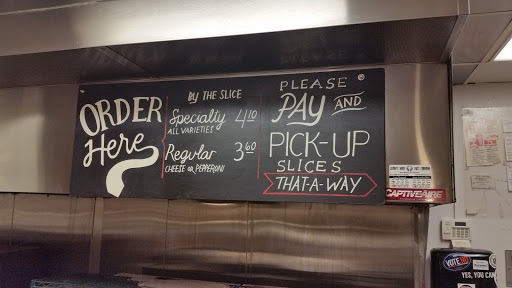 ORDER
Here
BY THE SLICE
Specialty 4.10
ALL VARIETIES
Regular 3.60
CHEESE OR PEPPERONI
PLEASE
PAY AND
PICK-UP
SLICES
THAT-A-WAY
CAPTIVEAIRE
VOTE
YES, YOU CAN